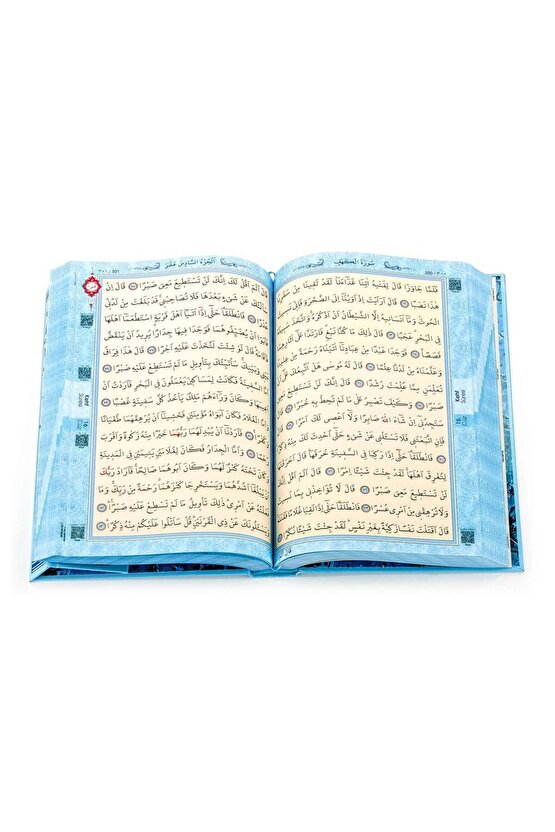 سُورَةُ الْكَهْفِ
300 / ٣٠٠
فَلَمَّا جَاوَزَا قَالَ لِفَتٰيهُ اٰتِنَا غَدَٓاءَنَا لَقَدْ لَقٖينَا مِنْ سَفَرِنَا
هٰذَا نَصَبًا قَالَ اَرَاَيْتَ اِذْ اَوَيْنَٓا اِلَى الصَّخْرَةِ فَاِنّٖي نَسٖيتُ
الْحُوتَ وَمَٓا اَنْسَانٖيهُ اِلَّا الشَّيْطَانُ اَنْ اَذْكُرَهُ وَاتَّخَذَ سَبٖيلَهُ
فِي الْبَحْرِ عَجَبًا قَالَ ذٰلِكَ مَا كُنَّا نَبْغِ فَارْتَدَّا عَلٰٓى اٰثَارِهِمَا
قَصَصًا فَوَجَدَا عَبْدًا مِنْ عِبَادِنَٓا اٰتَيْنَاهُ رَحْمَةً مِنْ عِنْدِنَا
وَعَلَّمْنَاهُ مِنْ لَدُنَّا عِلْمًا قَالَ لَهُ مُوسٰى هَلْ اَتَّبِعُكَ عَلٰٓى اَنْ
تُعَلِّمَنِ مِمَّا عُلِّمْتَ رُشْدًا قَالَ اِنَّكَ لَنْ تَسْتَطٖيعَ مَعِيَ
صَبْرًا وَكَيْفَ تَصْبِرُ عَلٰى مَا لَمْ تُحِطْ بِهٖ خُبْرًا قَالَ
سَتَجِدُنٖٓي اِنْ شَٓاءَ اللّٰهُ صَابِرًا وَلَٓا اَعْصٖي لَكَ اَمْرًا قَالَ
فَاِنِ اتَّبَعْتَنٖي فَلَا تَسْـَٔلْنٖي عَنْ شَيْءٍ حَتّٰٓى اُحْدِثَ لَكَ مِنْهُ ذِكْرًا
فَانْطَلَقَا حَتّٰٓى اِذَا رَكِبَا فِي السَّفٖينَةِ خَرَقَهَا قَالَ اَخَرَقْتَهَا
لِتُغْرِقَ اَهْلَهَا لَقَدْ جِئْتَ شَيْـًٔا اِمْرًا قَالَ اَلَمْ اَقُلْ اِنَّكَ
لَنْ تَسْتَطٖيعَ مَعِيَ صَبْرًا قَالَ لَا تُؤَاخِذْنٖي بِمَا نَسٖيتُ
وَلَا تُرْهِقْنٖي مِنْ اَمْرٖي عُسْرًا فَانْطَلَقَا حَتّٰٓى اِذَا لَقِيَا غُلَامًا فَقَتَلَهُ
قَالَ اَقَتَلْتَ نَفْسًا زَكِيَّةً بِغَيْرِ نَفْسٍ لَقَدْ جِئْتَ شَيْـًٔا نُكْرًا
Kehf
Suresi
اَلْجُزْءُ السَّادِسَ عَشَرَ
٣٠١ / 301
قَالَ اَلَمْ اَقُلْ لَكَ اِنَّكَ لَنْ تَسْتَطٖيعَ مَعِيَ صَبْرًا قَالَ اِنْ
سَاَلْتُكَ عَنْ شَيْءٍ بَعْدَهَا فَلَا تُصَاحِبْنٖي قَدْ بَلَغْتَ مِنْ لَدُنّٖي
عُذْرًا فَانْطَلَقَا حَتّٰٓى اِذَٓا اَتَيَٓا اَهْلَ قَرْيَةٍ اسْتَطْعَمَٓا اَهْلَهَا
فَاَبَوْا اَنْ يُضَيِّفُوهُمَا فَوَجَدَا فٖيهَا جِدَارًا يُرٖيدُ اَنْ يَنْقَضَّ
فَاَقَامَهُ قَالَ لَوْ شِئْتَ لَتَّخَذْتَ عَلَيْهِ اَجْرًا قَالَ هٰذَا فِرَاقُ
بَيْنٖي وَبَيْنِكَ سَاُنَبِّئُكَ بِتَأْوٖيلِ مَا لَمْ تَسْتَطِعْ عَلَيْهِ صَبْرًا
اَمَّا السَّفٖينَةُ فَكَانَتْ لِمَسَاكٖينَ يَعْمَلُونَ فِي الْبَحْرِ فَاَرَدْتُ اَنْ
اَعٖيبَهَا وَكَانَ وَرَٓاءَهُمْ مَلِكٌ يَأْخُذُ كُلَّ سَفٖينَةٍ غَصْبًا
وَاَمَّا الْغُلَامُ فَكَانَ اَبَوَاهُ مُؤْمِنَيْنِ فَخَشٖينَٓا اَنْ يُرْهِقَهُمَا طُغْيَانًا
وَكُفْرًا فَاَرَدْنَٓا اَنْ يُبْدِلَهُمَا رَبُّهُمَا خَيْرًا مِنْهُ زَكٰوةً وَاَقْرَبَ
رُحْمًا وَاَمَّا الْجِدَارُ فَكَانَ لِغُلَامَيْنِ يَتٖيمَيْنِ فِي الْمَدٖينَةِ
وَكَانَ تَحْتَهُ كَنْزٌ لَهُمَا وَكَانَ اَبُوهُمَا صَالِحًا فَاَرَادَ رَبُّكَ
اَنْ يَبْلُغَٓا اَشُدَّهُمَا وَيَسْتَخْرِجَا كَنْزَهُمَا رَحْمَةً مِنْ رَبِّكَ وَمَا
فَعَلْتُهُ عَنْ اَمْرٖي ذٰلِكَ تَأْوٖيلُ مَا لَمْ تَسْطِعْ عَلَيْهِ صَبْرًا
وَيَسْـَٔلُونَكَ عَنْ ذِي الْقَرْنَيْنِ قُلْ سَاَتْلُوا عَلَيْكُمْ مِنْهُ ذِكْرًا
Kehf
Suresi